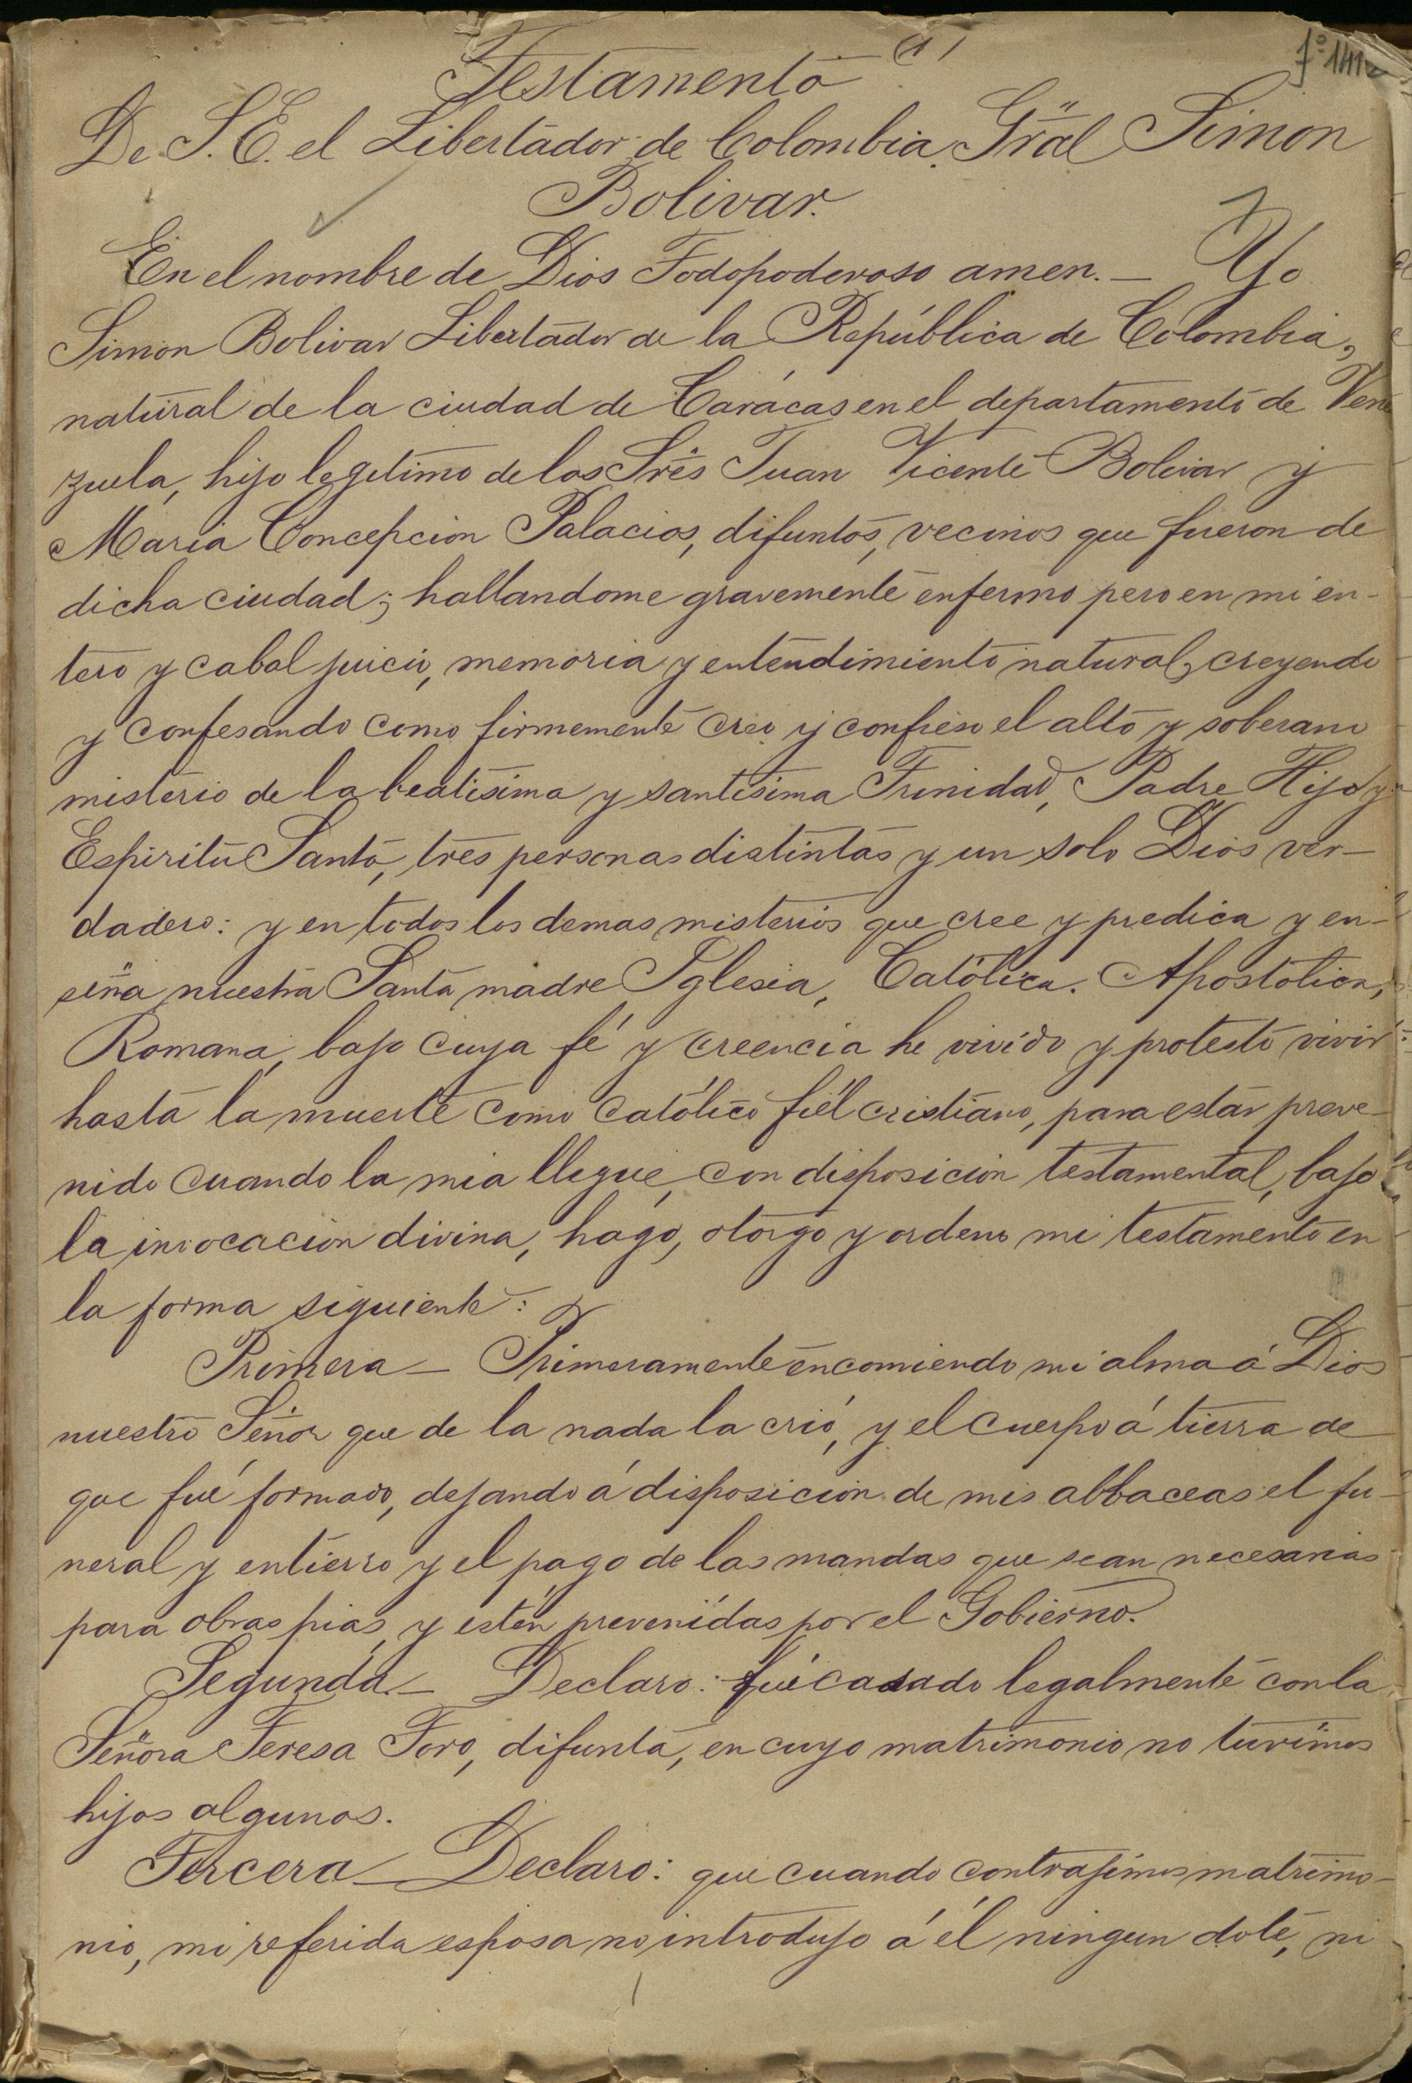 Testamento (1)
De S. E. el Libertador de Colombia, Gral Simon
Bolivar.
En el nombre de Dios Todopoderoso amen. — Yo
Simon Bolivar Libertador de la República de Colombia,
natural de la ciudad de Carácas en el departamento de Vene
zuela, hijo legitimo de los Srẽs Juan Vicente Bolivar y
Maria Concepcion Palacios, difuntos, vecinos que fueron de
dicha ciudad; hallandome gravemente enfermo pero en mi en-
tero y cabal juicio, memoria y entendimiento natural, creyendo
y confesando como firmemente creo y confieso el alto y soberano
misterio de la beatisima y santisima Trinidad, Padre Hijo y
Espiritu Santo, tres personas distintas y un solo Dios ver-
dadero: y en todos los demas misterios que cree y predica y en-
seña nuestra Santa madre Iglesia, Católica. Apostolica,
Romana, bajo cuya fé y creencia he vivido y protesto vivir
hasta la muerte como católico fiél cristiano, para estar preve-
nido cuando la mia llegue, con disposicion testamental, bajo
la invocacion divina, hago, otorgo y ordeno mi testamento en
la forma siguiente:
Primera — Primeramente encomiendo mi alma á Dios
nuestro Señor que de la nada la crió, y el cuerpo á tierra de
que fué formado, dejando á disposicion de mis albaceas el fu-
neral y entierro y el pago de las mandas que sean necesarias
para obras pias, y estén prevenidas por el Gobierno.
Segunda. — Declaro: fuí casado legalmente con la
Señora Teresa Toro, difunta, en cuyo matrimonio no tuvimos
hijos algunos.
Tercera — Declaro: que cuando contrajimos matrimo-
nio, mi referida esposa no introdujo á él ningun dote, ni